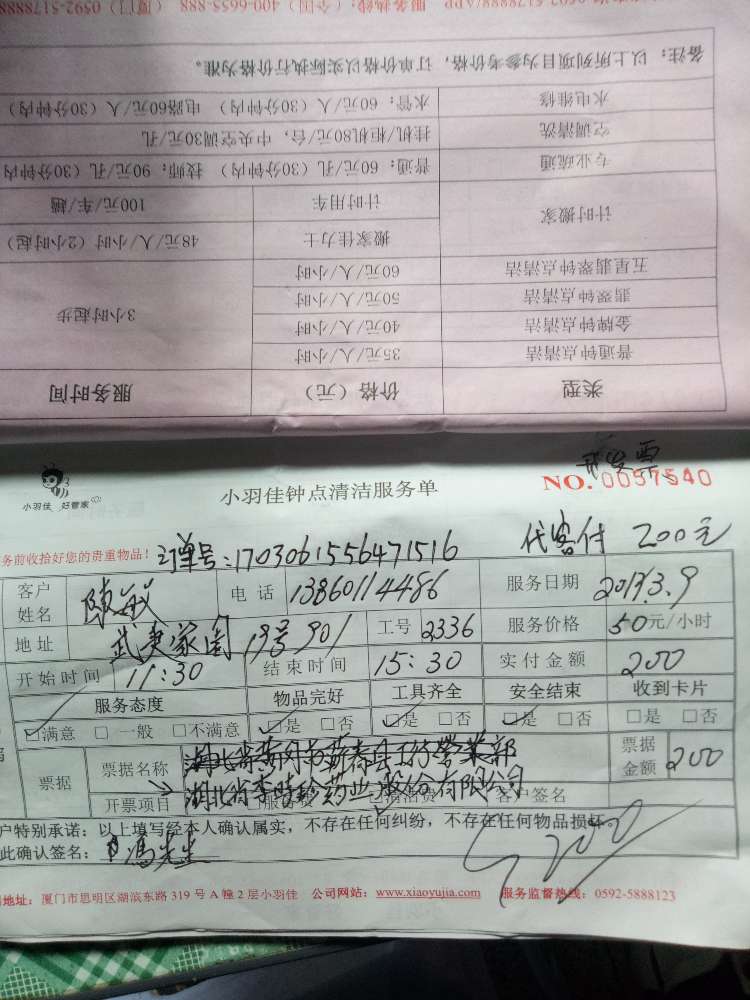 0592-5178888/APP 服务热线：（全国）400-6655-888 （厦门）0592-5178888
备注：以上所列项目为参考价格，订单价格以实际执行价格为准。
水电维修 水管：60元/人（30分钟内） 电路60元/人（30分钟内）
空调清洗 挂机/柜机80元/台，中央空调30元/孔
专业疏通 普通：60元/孔（30分钟内） 技师：90元/孔（30分钟内）
计时搬家 计时用车 100元/车/趟
搬家佳力士 48元/人/小时（2小时起）
五星翡翠钟点清洁 60元/人/小时
翡翠钟点清洁 50元/人/小时 3小时起步
金牌钟点清洁 40元/人/小时
普通钟点清洁 35元/人/小时
类型 价格（元） 服务时间
开发票
小羽佳 好管家
小羽佳钟点清洁服务单
NO. 0057540
务前收拾好您的贵重物品！ 订单号：1703061556471516 代客付 200元
客户姓名 陈敏 电话 13860114486 服务日期 2017.3.9
地址 19号901 工号 2336 服务价格 50元/小时
开始时间 11:30 结束时间 15:30 实付金额 200
服务态度 物品完好 工具齐全 安全结束 收到卡片
☑满意 □一般 □不满意 ☑是 □否 ☑是 □否 ☑是 □否 □是 □否
票据 票据名称 票据金额 200
开票项目 湖北省李时珍药业股份有限公司 客户签名
户特别承诺：以上填写经本人确认属实，不存在任何纠纷，不存在任何物品损坏。
此确认签名： 冯先生 200
地址：厦门市思明区湖滨东路 319 号 A 幢 2 层小羽佳 公司网站：www.xiaoyujia.com 服务监督热线：0592-5888123